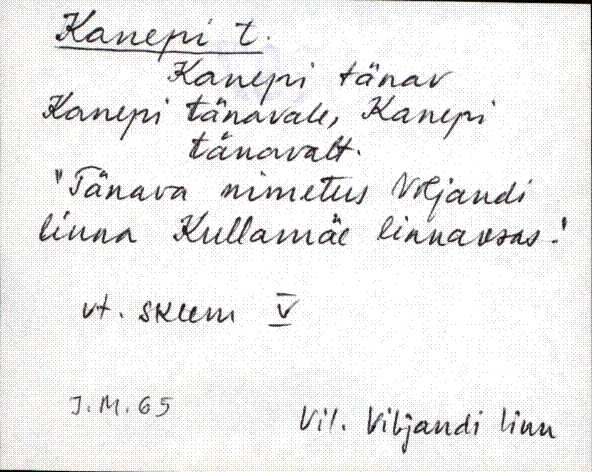 Kanepi t.
Kanepi tänav
Kanepi tänavale, Kanepi
tänavalt.
"Tänava nimetus Viljandi
linna Kullamäe linnaosas."
vt. skeem V
J.M.65
Vil. Viljandi linn